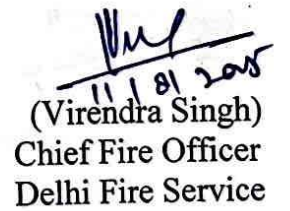 11/01/2025
(Virendra Singh)
Chief Fire Officer
Delhi Fire Service